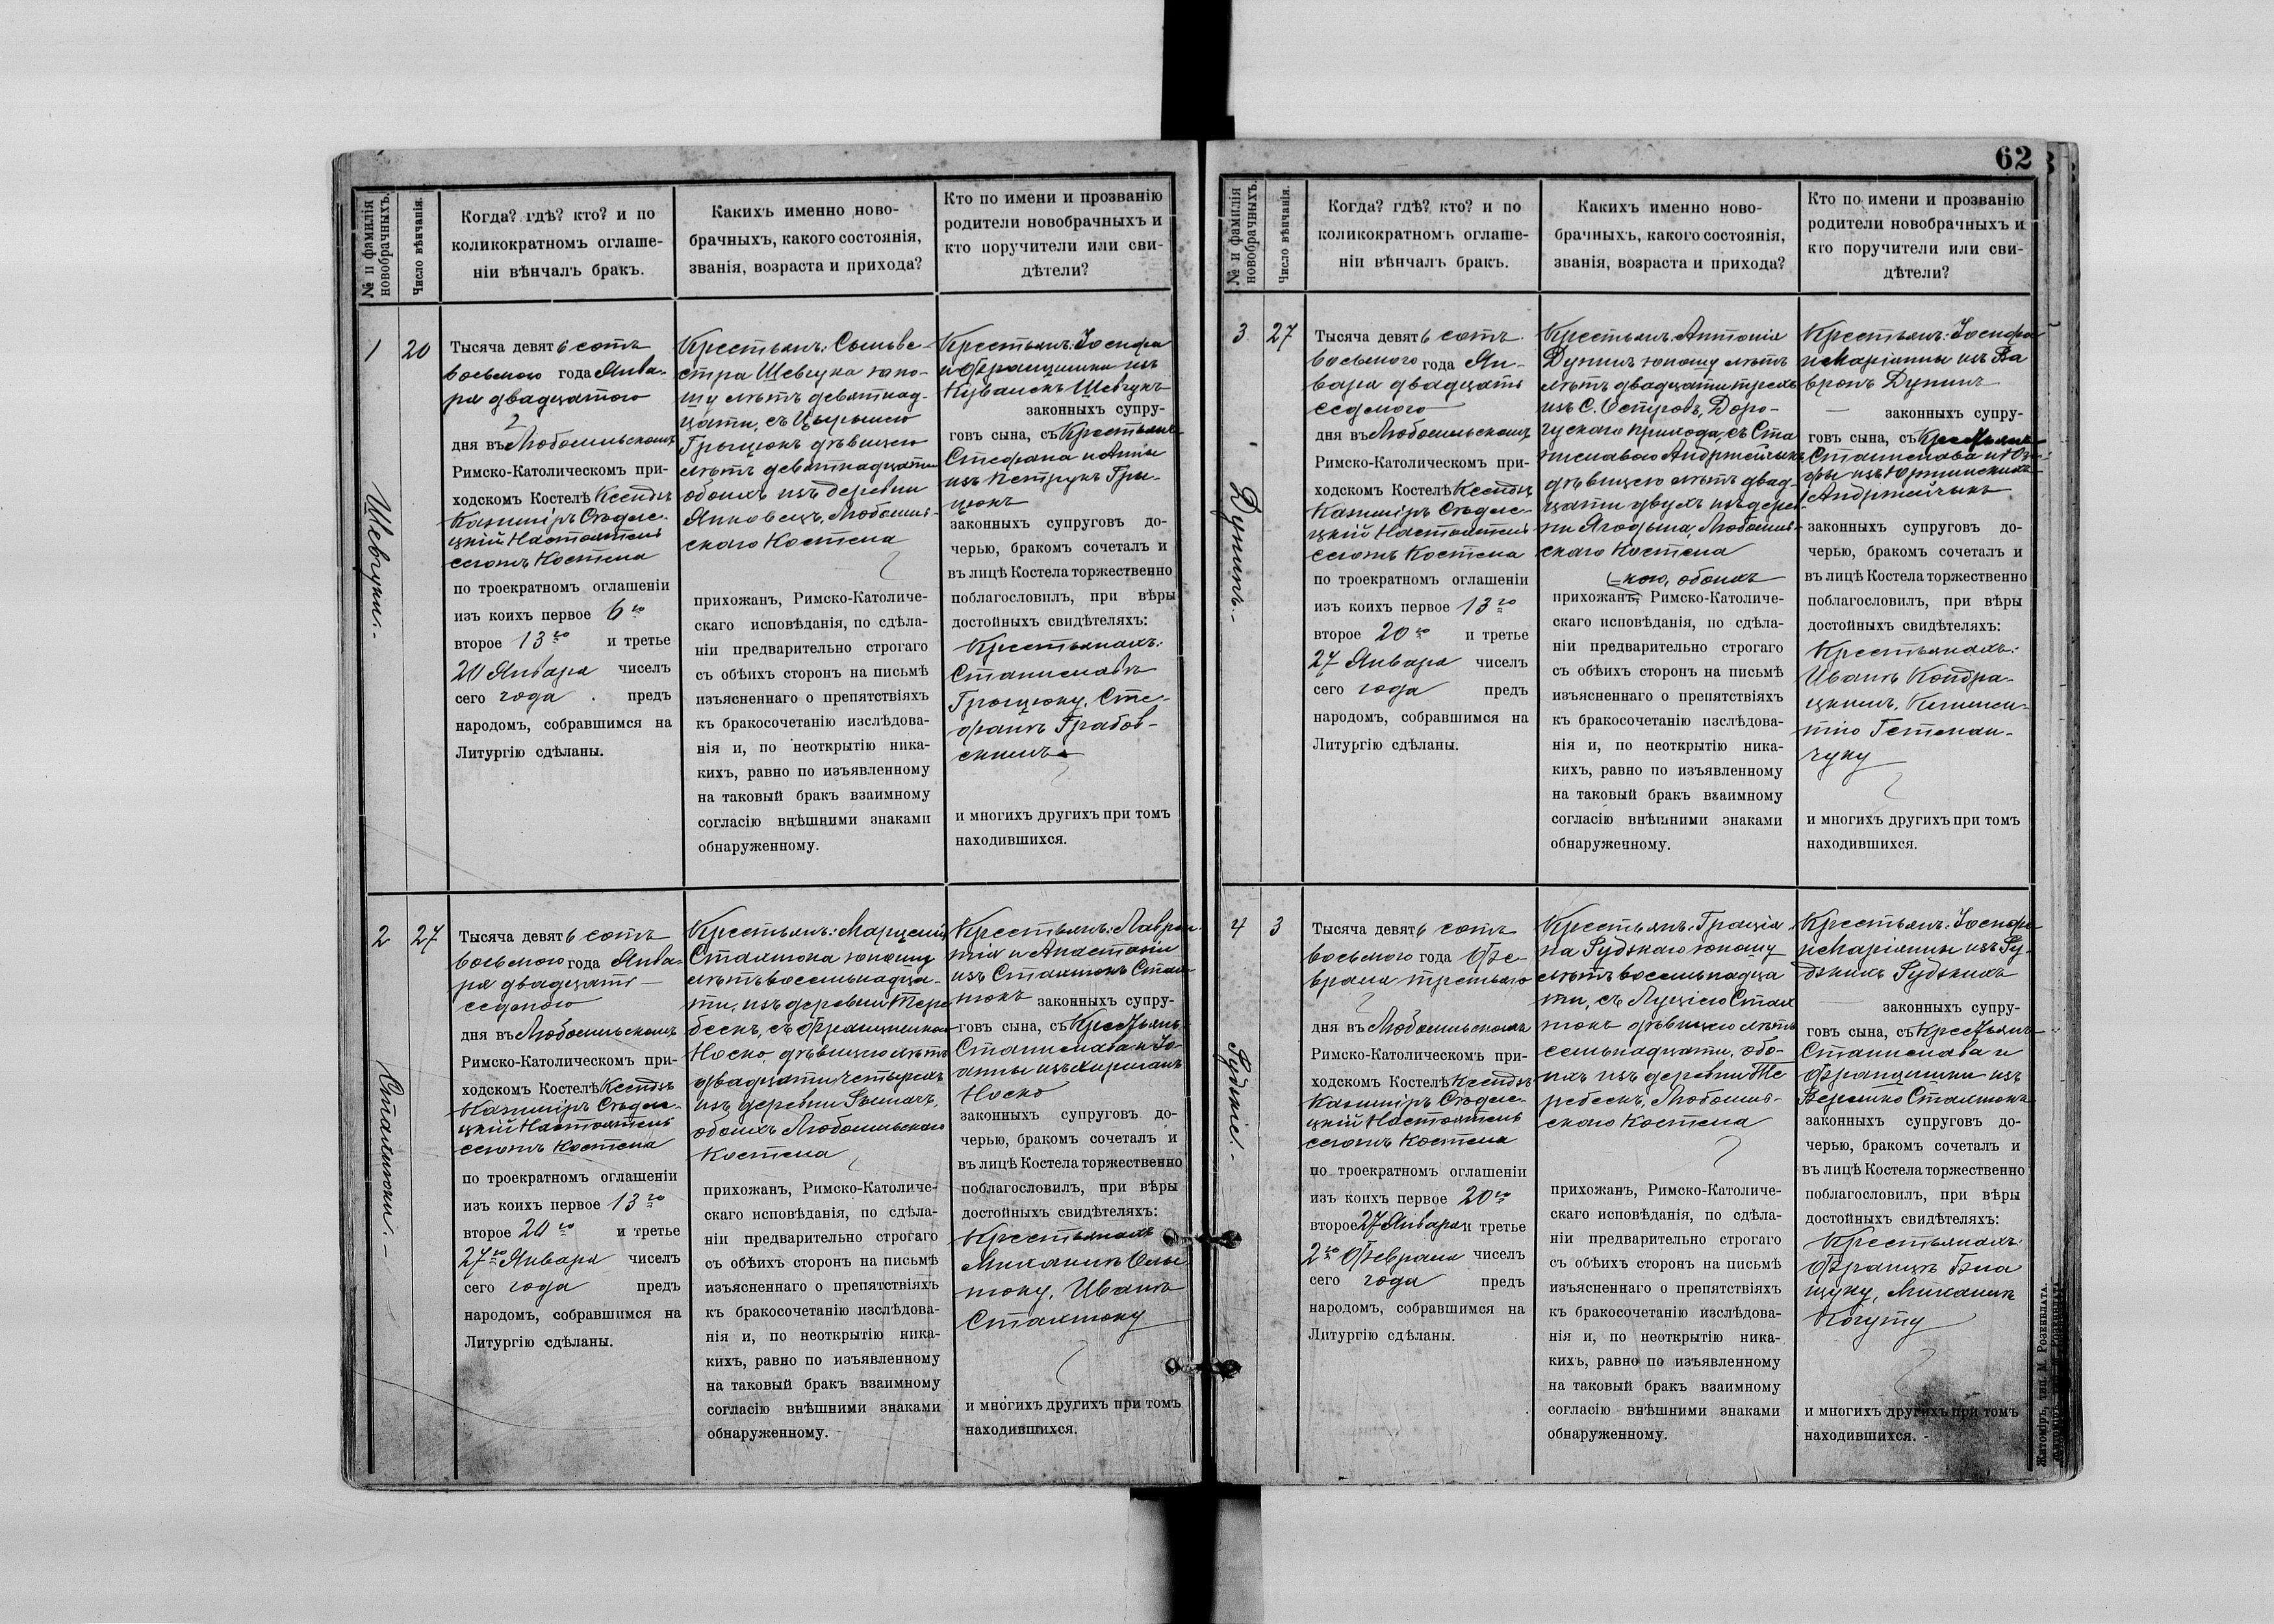 62
№ и фамилія новобрачныхъ.
Число вѣнчанія.
Когда? гдѣ? кто? и по
коликократномъ оглаше-
ніи вѣнчалъ бракъ.
Какихъ именно ново-
брачныхъ, какого состоянія,
званія, возраста и прихода?
Кто по имени и прозванію
родители новобрачныхъ и
кто поручители или сви-
дѣтели?
1
20
Шевчуки.-
Тысяча девятьсотъ
восьмого года Янва-
ря двадцатого
дня въ Любомльскомъ
Римско-Католическомъ при-
ходскомъ Костелѣ Ксендзъ
Казиміръ Сѣдле-
цкій Настоятель
сегожъ Костела
по троекратномъ оглашеніи
изъ коихъ первое 6го
второе 13го и третье
20 Января чиселъ
сего года предъ
народомъ, собравшимся на
Литургію сдѣланы.
Крестьянъ: Сильве-
стра Шевчука юно-
шу лѣтъ девятнад-
цати, съ
Грыцюкъ дѣвицею
лѣтъ девятнадцати
обоихъ изъ деревни
Янковецъ, Любомль-
скаго Костела
прихожанъ, Римско-Католиче-
скаго исповѣданія, по сдѣла-
ніи предварительно строгаго
съ обѣихъ сторонъ на письмѣ
изъясненнаго о препятствіяхъ
къ бракосочетанію изслѣдова-
нія и, по неоткрытію ника-
кихъ, равно по изъявленному
на таковый бракъ взаимному
согласію внѣшними знаками
обнаруженному.
Крестьянъ: Іосифа
и Францишки изъ
Шевчукъ
законныхъ супру-
говъ сына, съ Крестьянъ
Стефана и Анны
изъ Петрукъ Гры-
цюкъ
законныхъ супруговъ до-
черью, бракомъ сочеталъ и
въ лицѣ Костела торжественно
поблагословилъ, при вѣры
достойныхъ свидѣтеляхъ:
Крестьянахъ:
Станиславѣ
Грыцюку, Сте-
фанѣ Грабов-
скимъ
и многихъ другихъ при томъ
находившихся.
2
27
Стахнюки.-
Тысяча девятьсотъ
восьмого года Янва-
ря двадцать
седьмого
дня въ Любомльскомъ
Римско-Католическомъ при-
ходскомъ Костелѣ Ксендзъ
Казиміръ Сѣдле-
цкій Настоятель
сегожъ Костела
по троекратномъ оглашеніи
изъ коихъ первое 13го
второе 20го и третье
27го Января чиселъ
сего года предъ
народомъ, собравшимся на
Литургію сдѣланы.
Крестьянъ:
юношу
лѣтъ восемнадца-
ти, изъ деревни Тере-
бескъ, съ Францишкою
Носко, дѣвицею лѣтъ
двадцати четырехъ
изъ деревни Рымачъ,
обоихъ Любомльскаго
Костела
прихожанъ, Римско-Католиче-
скаго исповѣданія, по сдѣла-
ніи предварительно строгаго
съ обѣихъ сторонъ на письмѣ
изъясненнаго о препятствіяхъ
къ бракосочетанію изслѣдова-
нія и, по неоткрытію ника-
кихъ, равно по изъявленному
на таковый бракъ взаимному
согласію внѣшними знаками
обнаруженному.
Крестьянъ: Лаврен-
тія и Анастасіи
изъ
законныхъ супру-
говъ сына, съ Крестьянъ
Станислава и Іо-
анны изъ
Носко
законныхъ супруговъ до-
черью, бракомъ сочеталъ и
въ лицѣ Костела торжественно
поблагословилъ, при вѣры
достойныхъ свидѣтеляхъ:
Крестьянахъ
Михаилѣ
Иванѣ
и многихъ другихъ при томъ
находившихся.
№ и фамилія новобрачныхъ.
Число вѣнчанія.
Когда? гдѣ? кто? и по
коликократномъ оглаше-
ніи вѣнчалъ бракъ.
Какихъ именно ново-
брачныхъ, какого состоянія,
званія, возраста и прихода?
Кто по имени и прозванію
родители новобрачныхъ и
кто поручители или сви-
дѣтели?
3
27
Тысяча девятьсотъ
восьмого года Ян-
варя двадцать
седьмого
дня въ Любомльскомъ
Римско-Католическомъ при-
ходскомъ Костелѣ Ксендзъ
Казиміръ Сѣдле-
цкій Настоятель
сегожъ Костела
по троекратномъ оглашеніи
изъ коихъ первое 13го
второе 20го и третье
27 Января чиселъ
сего года предъ
народомъ, собравшимся на
Литургію сдѣланы.
Крестьянъ Антонія
юношу лѣтъ
лѣтъ двадцати трехъ
изъ С. Островъ, Доро-
гускаго прихода, съ Ста
ниславою Андржейчукъ
дѣвицею лѣтъ двад-
цати двухъ изъ дерев-
ни Ягодына, Любомль-
скаго Костела
обоихъ
прихожанъ, Римско-Католиче-
скаго исповѣданія, по сдѣла-
ніи предварительно строгаго
съ обѣихъ сторонъ на письмѣ
изъясненнаго о препятствіяхъ
къ бракосочетанію изслѣдова-
нія и, по неоткрытію ника-
кихъ, равно по изъявленному
на таковый бракъ взаимному
согласію внѣшними знаками
обнаруженному.
Крестьянъ: Іосифа
и Маріанны изъ
законныхъ супру-
говъ сына, съ Крестьянъ
Станислава и
законныхъ супруговъ до-
черью, бракомъ сочеталъ и
въ лицѣ Костела торжественно
поблагословилъ, при вѣры
достойныхъ свидѣтеляхъ:
Крестьянахъ:
Иванѣ Кондра-
и многихъ другихъ при томъ
находившихся.
4
3
Рудзкіе.-
Тысяча девятьсотъ
восьмого года Фе-
враля третьяго
дня въ Любомльскомъ
Римско-Католическомъ при-
ходскомъ Костелѣ Ксендзъ
Казиміръ Сѣдле-
цкій Настоятель
сегожъ Костела
по троекратномъ оглашеніи
изъ коихъ первое 20го
второе 27 Января и третье
2го Февраля чиселъ
сего года предъ
народомъ, собравшимся на
Литургію сдѣланы.
Крестьянъ: Граціа-
на Рудзкаго юношу
лѣтъ восемнадца
ти, съ Луціею Стах
нюкъ дѣвицею лѣтъ
семнадцати, обо-
ихъ изъ деревни Те
ребескъ, Любомль-
скаго Костела
прихожанъ, Римско-Католиче-
скаго исповѣданія, по сдѣла-
ніи предварительно строгаго
съ обѣихъ сторонъ на письмѣ
изъясненнаго о препятствіяхъ
къ бракосочетанію изслѣдова-
нія и, по неоткрытію ника-
кихъ, равно по изъявленному
на таковый бракъ взаимному
согласію внѣшними знаками
обнаруженному.
Крестьянъ: Іосифа
и Маріанны изъ Ру-
дзкихъ Рудзкихъ
законныхъ супру-
говъ сына, съ Крестьянъ
Станислава и
Францишки изъ
законныхъ супруговъ до-
черью, бракомъ сочеталъ и
въ лицѣ Костела торжественно
поблагословилъ, при вѣры
достойныхъ свидѣтеляхъ:
Крестьянахъ:
Францѣ
Михаилѣ
Когуту
и многихъ другихъ при томъ
находившихся.
Житоміръ, тип. М. Розенблата.